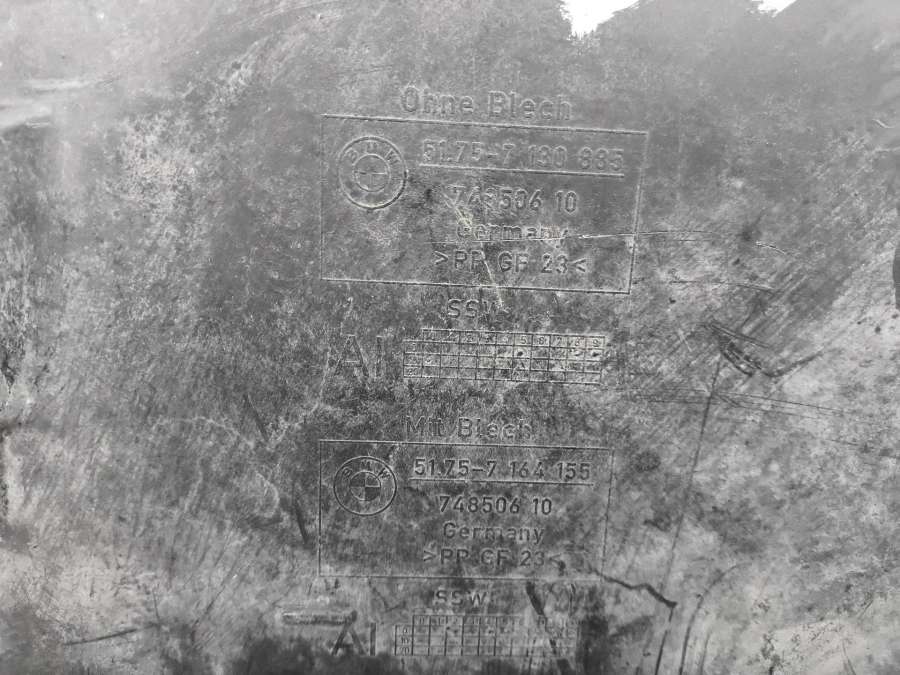 Ohne Blech
BMW
51.75-7 130 885
748506 10
Germany
>PP GF 23<
SSW
AI
Mit Blech
BMW
51.75-7 164 155
748506 10
Germany
>PP GF 23<
SSW
AI